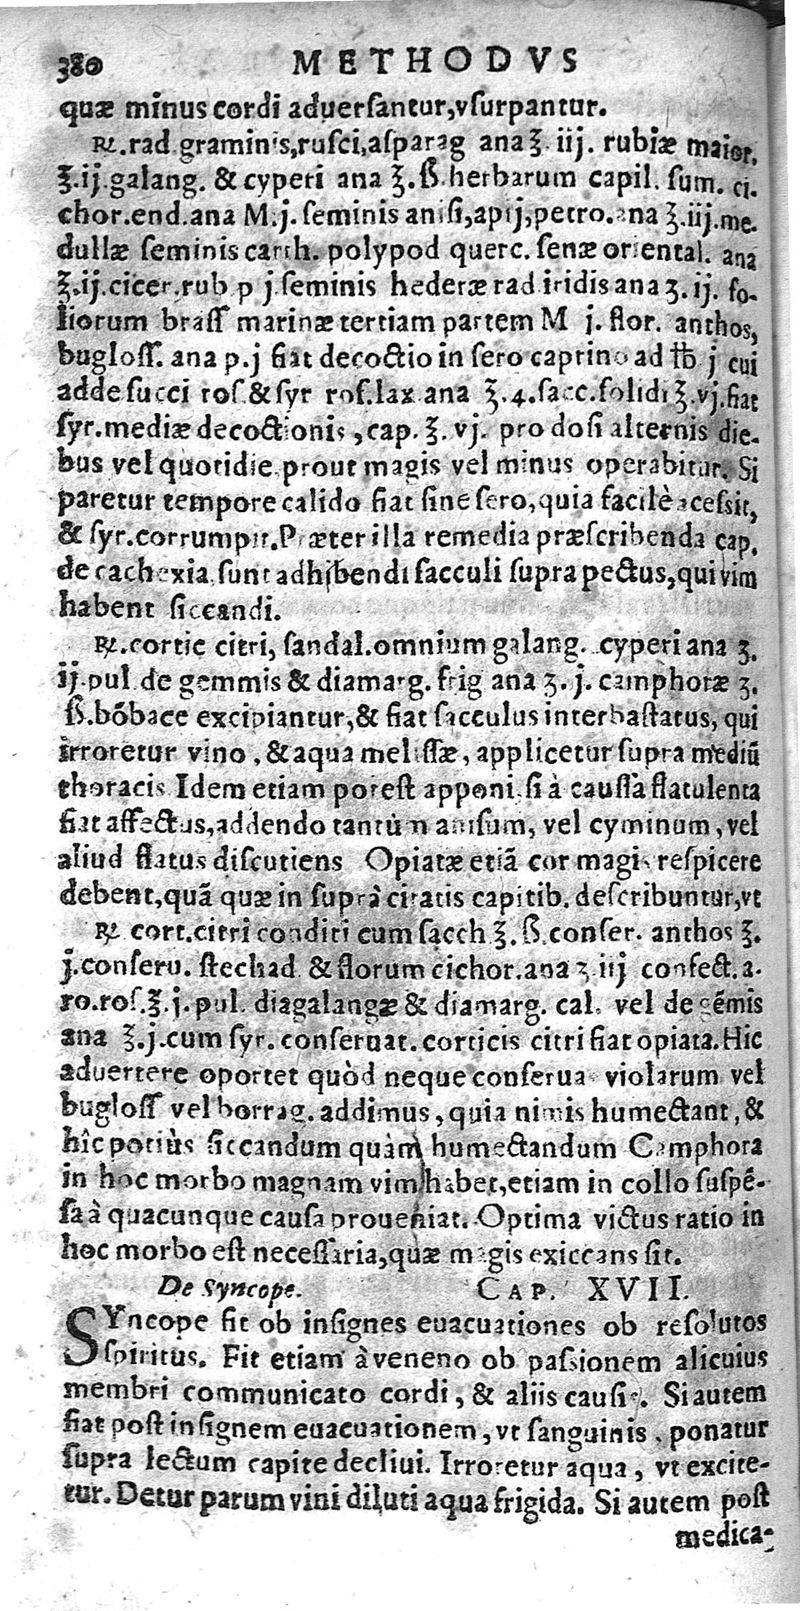 380 METHODVS
quæ minus cordi aduersantur,vsurpantur.
℞.rad.graminis,rusci,asparag ana ℥ iij. rubiæ maior.
℥.ij.galang. & cyperi ana ℥.ß.herbarum capil. sum. ci-
chor.end.ana M.j. seminis anisi,apij,petro.ana ℥.iij.me-
dullæ seminis carth. polypod querc. senæ oriental. ana
℥.ij.cicer.rub p j.seminis hederæ rad iridis ana ʒ. ij. fo-
liorum brass marinæ tertiam partem M j. flor. anthos,
bugloss. ana p.j fiat decoctio in sero caprino ad ℔ j cui
adde succi ros.& syr ros.lax ana ℥.4.sacc.solidi ℥.vj.fiat
syr.mediæ decoctionis,cap.℥.vj. pro dosi alternis die-
bus vel quotidie prout magis vel minus operabitur. Si
paretur tempore calido fiat sine sero,quia facilè acessit,
& syr.corrumpit.Præter illa remedia præscribenda cap.
de cachexia sunt adhibendi sacculi supra pectus,qui vim
habent siccandi.
℞.cortic citri, sandal.omnium galang. cyperi ana ʒ.
ij.pul de gemmis & diamarg. frig ana ʒ. j. camphoræ ʒ.
ß.bõbace excipiantur,& fiat sacculus interbastatus, qui
irroretur vino,& aqua melissæ, applicetur supra mediũ
thoracis Idem etiam potest apponi si à caussa flatulenta
fiat affectus,addendo tantùm anisum, vel cyminum, vel
aliud flatus discutiens Opiatæ etiã cor magis respicere
debent,quã quæ in suprà citatis capitib. describuntur,vt
℞ cort.citri conditi cum sacch ℥.ß.conser. anthos ℥.
j.conseru. stechad & florum cichor.ana ʒ iij confect. a-
ro.ros.℥.j.pul. diagalangæ & diamarg. cal. vel de gẽmis
ana ℥.j.cum syr. conseruat.corticis citri fiat opiata.Hic
aduertere oportet quòd neque conseruas violarum vel
bugloss vel borrag. addimus, quia nimis humectant, &
hîc potiùs siccandum quàm humectandum Camphora
in hoc morbo magnam vim habet,etiam in collo suspẽ-
sa à quacunque causa proueniat. Optima victus ratio in
hoc morbo est necessaria,quæ magis exiccans sit.
De Syncope. CAP. XVII.
SYncope fit ob insignes euacuationes ob resolutos
spiritus. Fit etiam à veneno ob passionem alicuius
membri communicato cordi, & aliis causis. Si autem
fiat post insignem euacuationem, vt sanguinis, ponatur
supra lectum capite decliui. Irroretur aqua, vt excite-
tur. Detur parum vini diluti aqua frigida. Si autem post
medica-